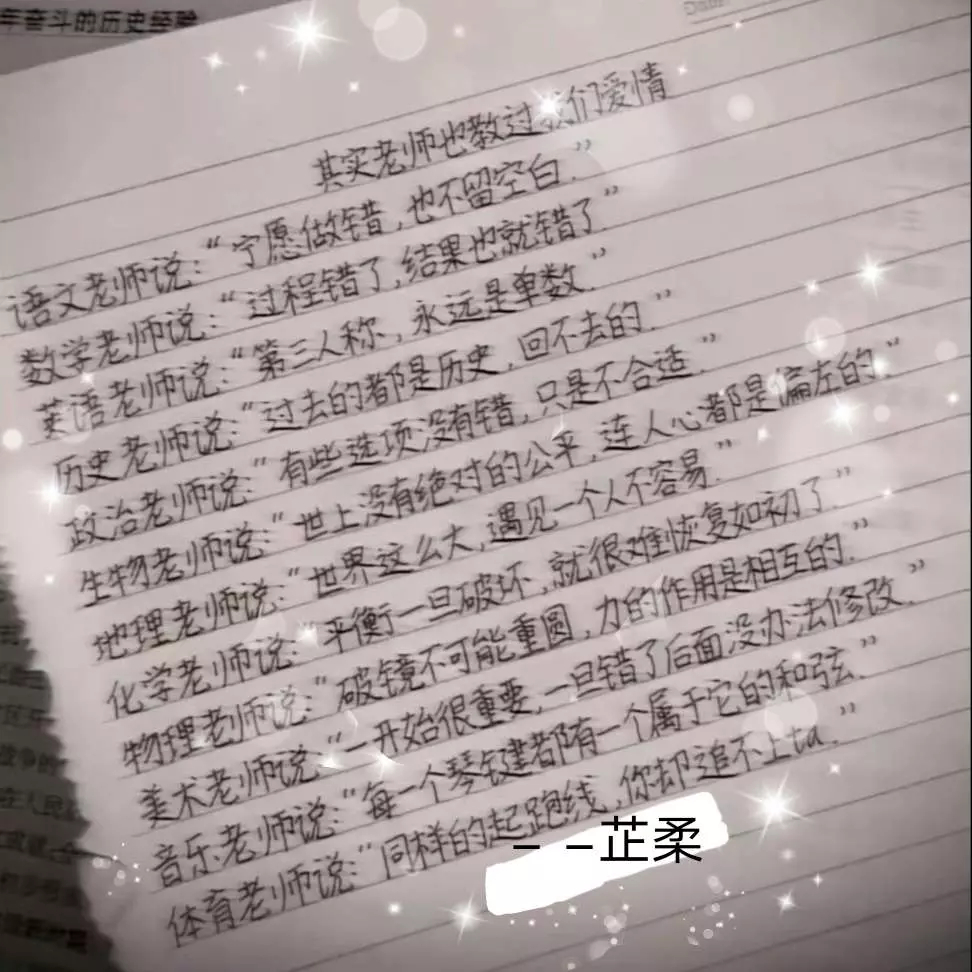 年奋斗的历史经验
其实老师也教过我们爱情
语文老师说:“宁愿做错,也不留空白.”
数学老师说:“过程错了,结果也就错了.”
英语老师说:“第三人称,永远是单数.”
历史老师说:“过去的都是历史,回不去的.”
政治老师说:“有些选项没有错,只是不合适.”
生物老师说:“世上没有绝对的公平,连人心都是偏左的.”
地理老师说:“世界这么大,遇见一个人不容易.”
化学老师说:“平衡一旦破坏,就很难恢复如初了.”
物理老师说:“破镜不可能重圆,力的作用是相互的.”
美术老师说:“一开始很重要,一旦错了后面没办法修改.”
音乐老师说:“每一个琴键都有一个属于它的和弦.”
体育老师说:“同样的起跑线,你却追不上ta.”
– –芷柔